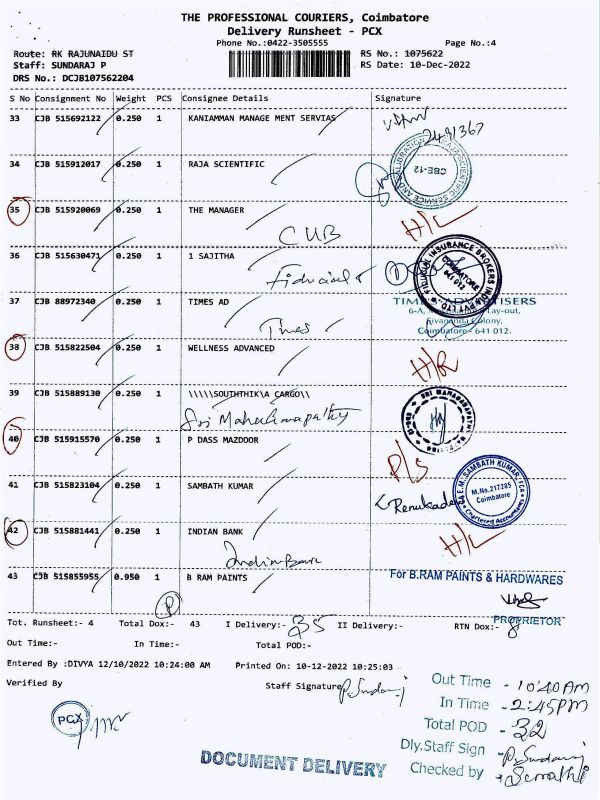 THE PROFESSIONAL COURIERS, Coimbatore
Delivery Runsheet - PCX
Phone No.:0422-3505555 Page No.:4
Route: RK RAJUNAIDU ST RS No.: 1075622
Staff: SUNDARAJ P RS Date: 10-Dec-2022
DRS No.: DCJB107562204
S No Consignment No Weight PCS Consignee Details Signature
33 CJB 515692122 0.250 1 KANIAMMAN MANAGE MENT SERVIAS
2491367
34 CJB 515912017 0.250 1 RAJA SCIENTIFIC
CBE-12
35 CJB 515920069 0.250 1 THE MANAGER H/L
CUB
36 CJB 515630471 0.250 1 1 SAJITHA
Fiducial
FIDUCIAL INSURANCE BROKERS INDIA PVT LTD. COIMBATORE 641 012
37 CJB 88972340 0.250 1 TIMES AD TIMES ADVERTISERS
Times
Sivananda Colony,
Coimbatore - 641 012.
38 CJB 515822504 0.250 1 WELLNESS ADVANCED H/R
39 CJB 515889130 0.250 1 \\\\\SOUTHTHIK\A CARGO\\
Sri Mahaganapathy
40 CJB 515915570 0.250 1 P DASS MAZDOOR P/S
41 CJB 515823104 0.250 1 SAMBATH KUMAR
E.M. SAMBATH KUMAR, FCA M.No.217285 Coimbatore Chartered Accountant
Renukadevi
42 CJB 515881441 0.250 1 INDIAN BANK H/L
Indian Bank
43 CJB 515855955 0.950 1 B RAM PAINTS For B.RAM PAINTS & HARDWARES
P PROPRIETOR
Tot. Runsheet:- 4 Total Dox:- 43 I Delivery:- 35 II Delivery:- RTN Dox:- 8
Out Time:- In Time:- Total POD:-
Entered By :DIVYA 12/10/2022 10:24:00 AM Printed On: 10-12-2022 10:25:03
Verified By Staff Signature P. Sundaraj
PCX
Out Time - 10:40 AM
In Time - 2:45 PM
Total POD - 32
Dly.Staff Sign - P. Sundaraj
Checked by
DOCUMENT DELIVERY